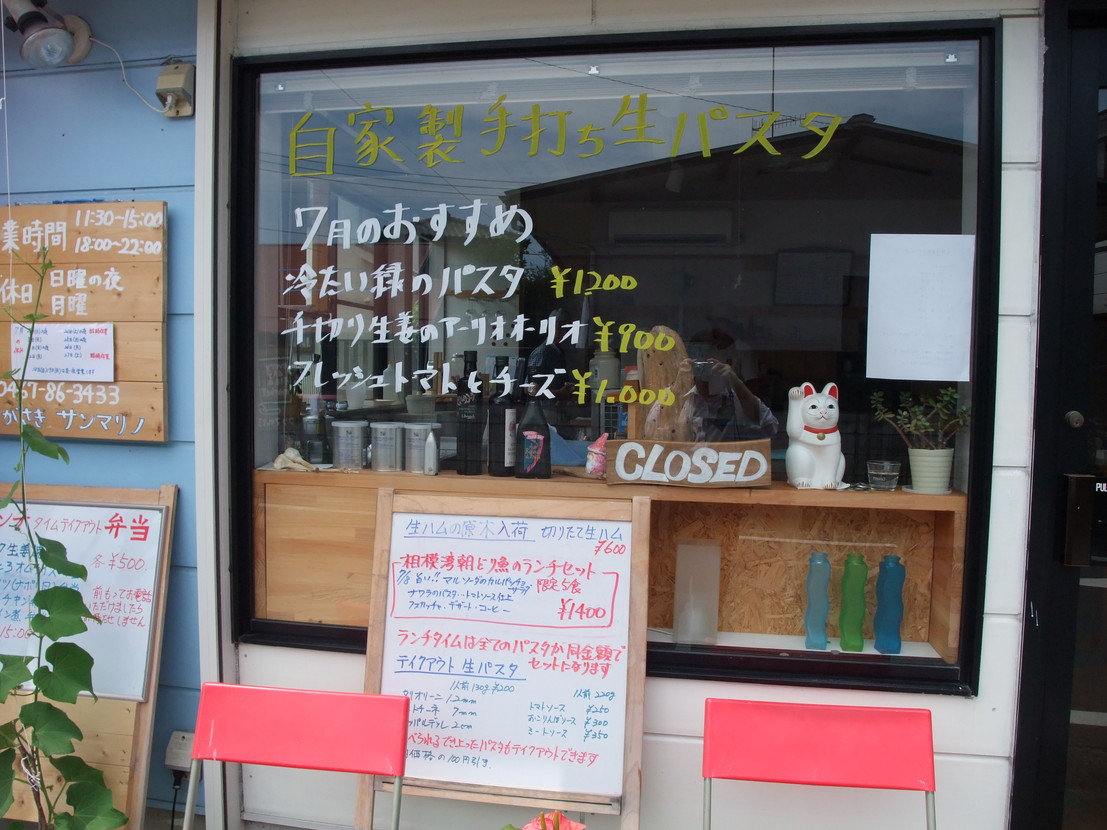 自家製手打ち生パスタ
7月のおすすめ
冷たい緑のパスタ ¥1200
千切り生姜のアーリオオーリオ ¥900
フレッシュトマトとチーズ ¥1.000
CLOSED
業時間 11:30~15:00
18:00~22:00
休日 日曜の夜
月曜
0467-86-3433
がさき サンマリノ
タイムテイクアウト 弁当
各¥500
前もってお電話
いただけましたら
お待たせしません
生ハムの原木入荷 切りたて生ハム
¥600
相模湾朝どり魚のランチセット
マルソーダのカルパッチョ
限定5食
サワラのパスタ・トマトソース仕上
フォカッチャ・デザート・コーヒー
¥1400
ランチタイムは全てのパスタが同金額で
セットになります
テイクアウト 生パスタ
1人前 130g ¥200
1人前 220g
タリオリーニ 1.2mm
トマトソース ¥250
7mm
おこりんぼソース ¥300
パッパルデッレ 2cm
ミートソース ¥350
べられるでき上ったパスタもテイクアウトできます
価格の100円引き
PUL